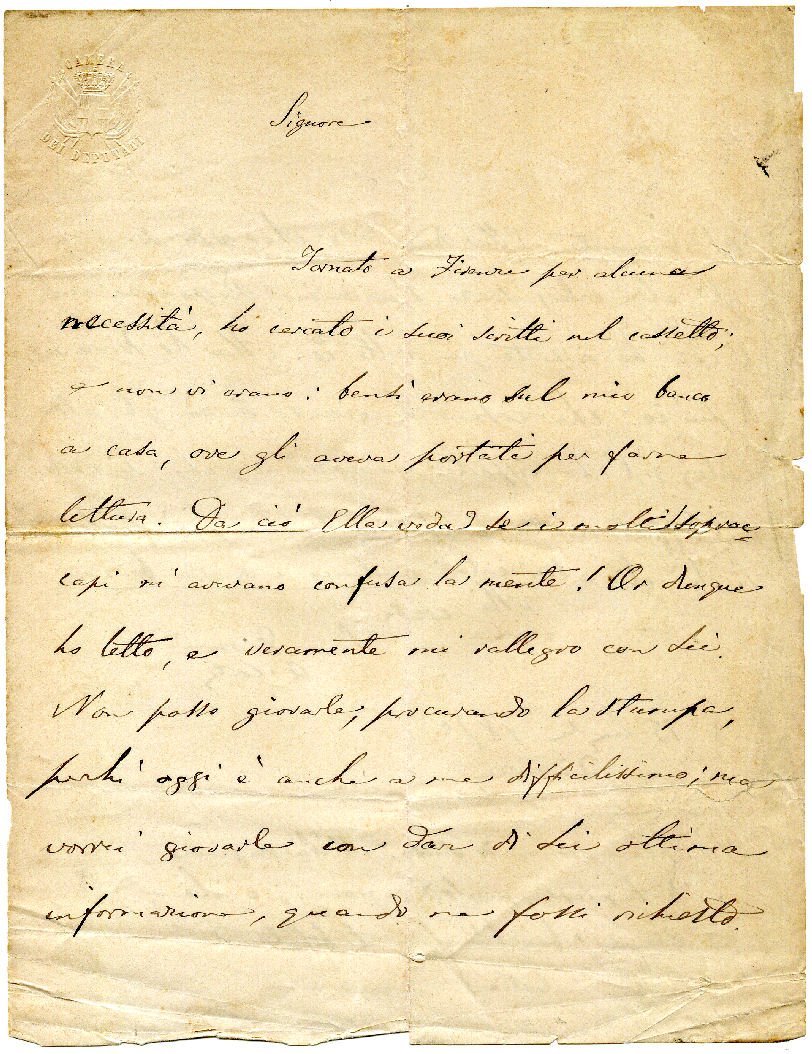 CAMERA
DEI DEPUTATI
Signore
Tornato a Firenze per alcuna
necessità, ho cercato i suoi scritti nel cassetto;
e non vi erano: bensì erano sul mio banco
a casa, ove gli aveva portati per farne
lettura. Da ciò Ella veda se i molti sopra=
capi m'avevano confusa la mente! Or dunque
ho letto, e veramente mi rallegro con Lei.
Non posso giovarle, procurando la stampa,
perchè oggi è anche a me difficilissimo; ma
vorrei giovarle con dar di Lei ottima
informazione, quando ne fossi richiesto.